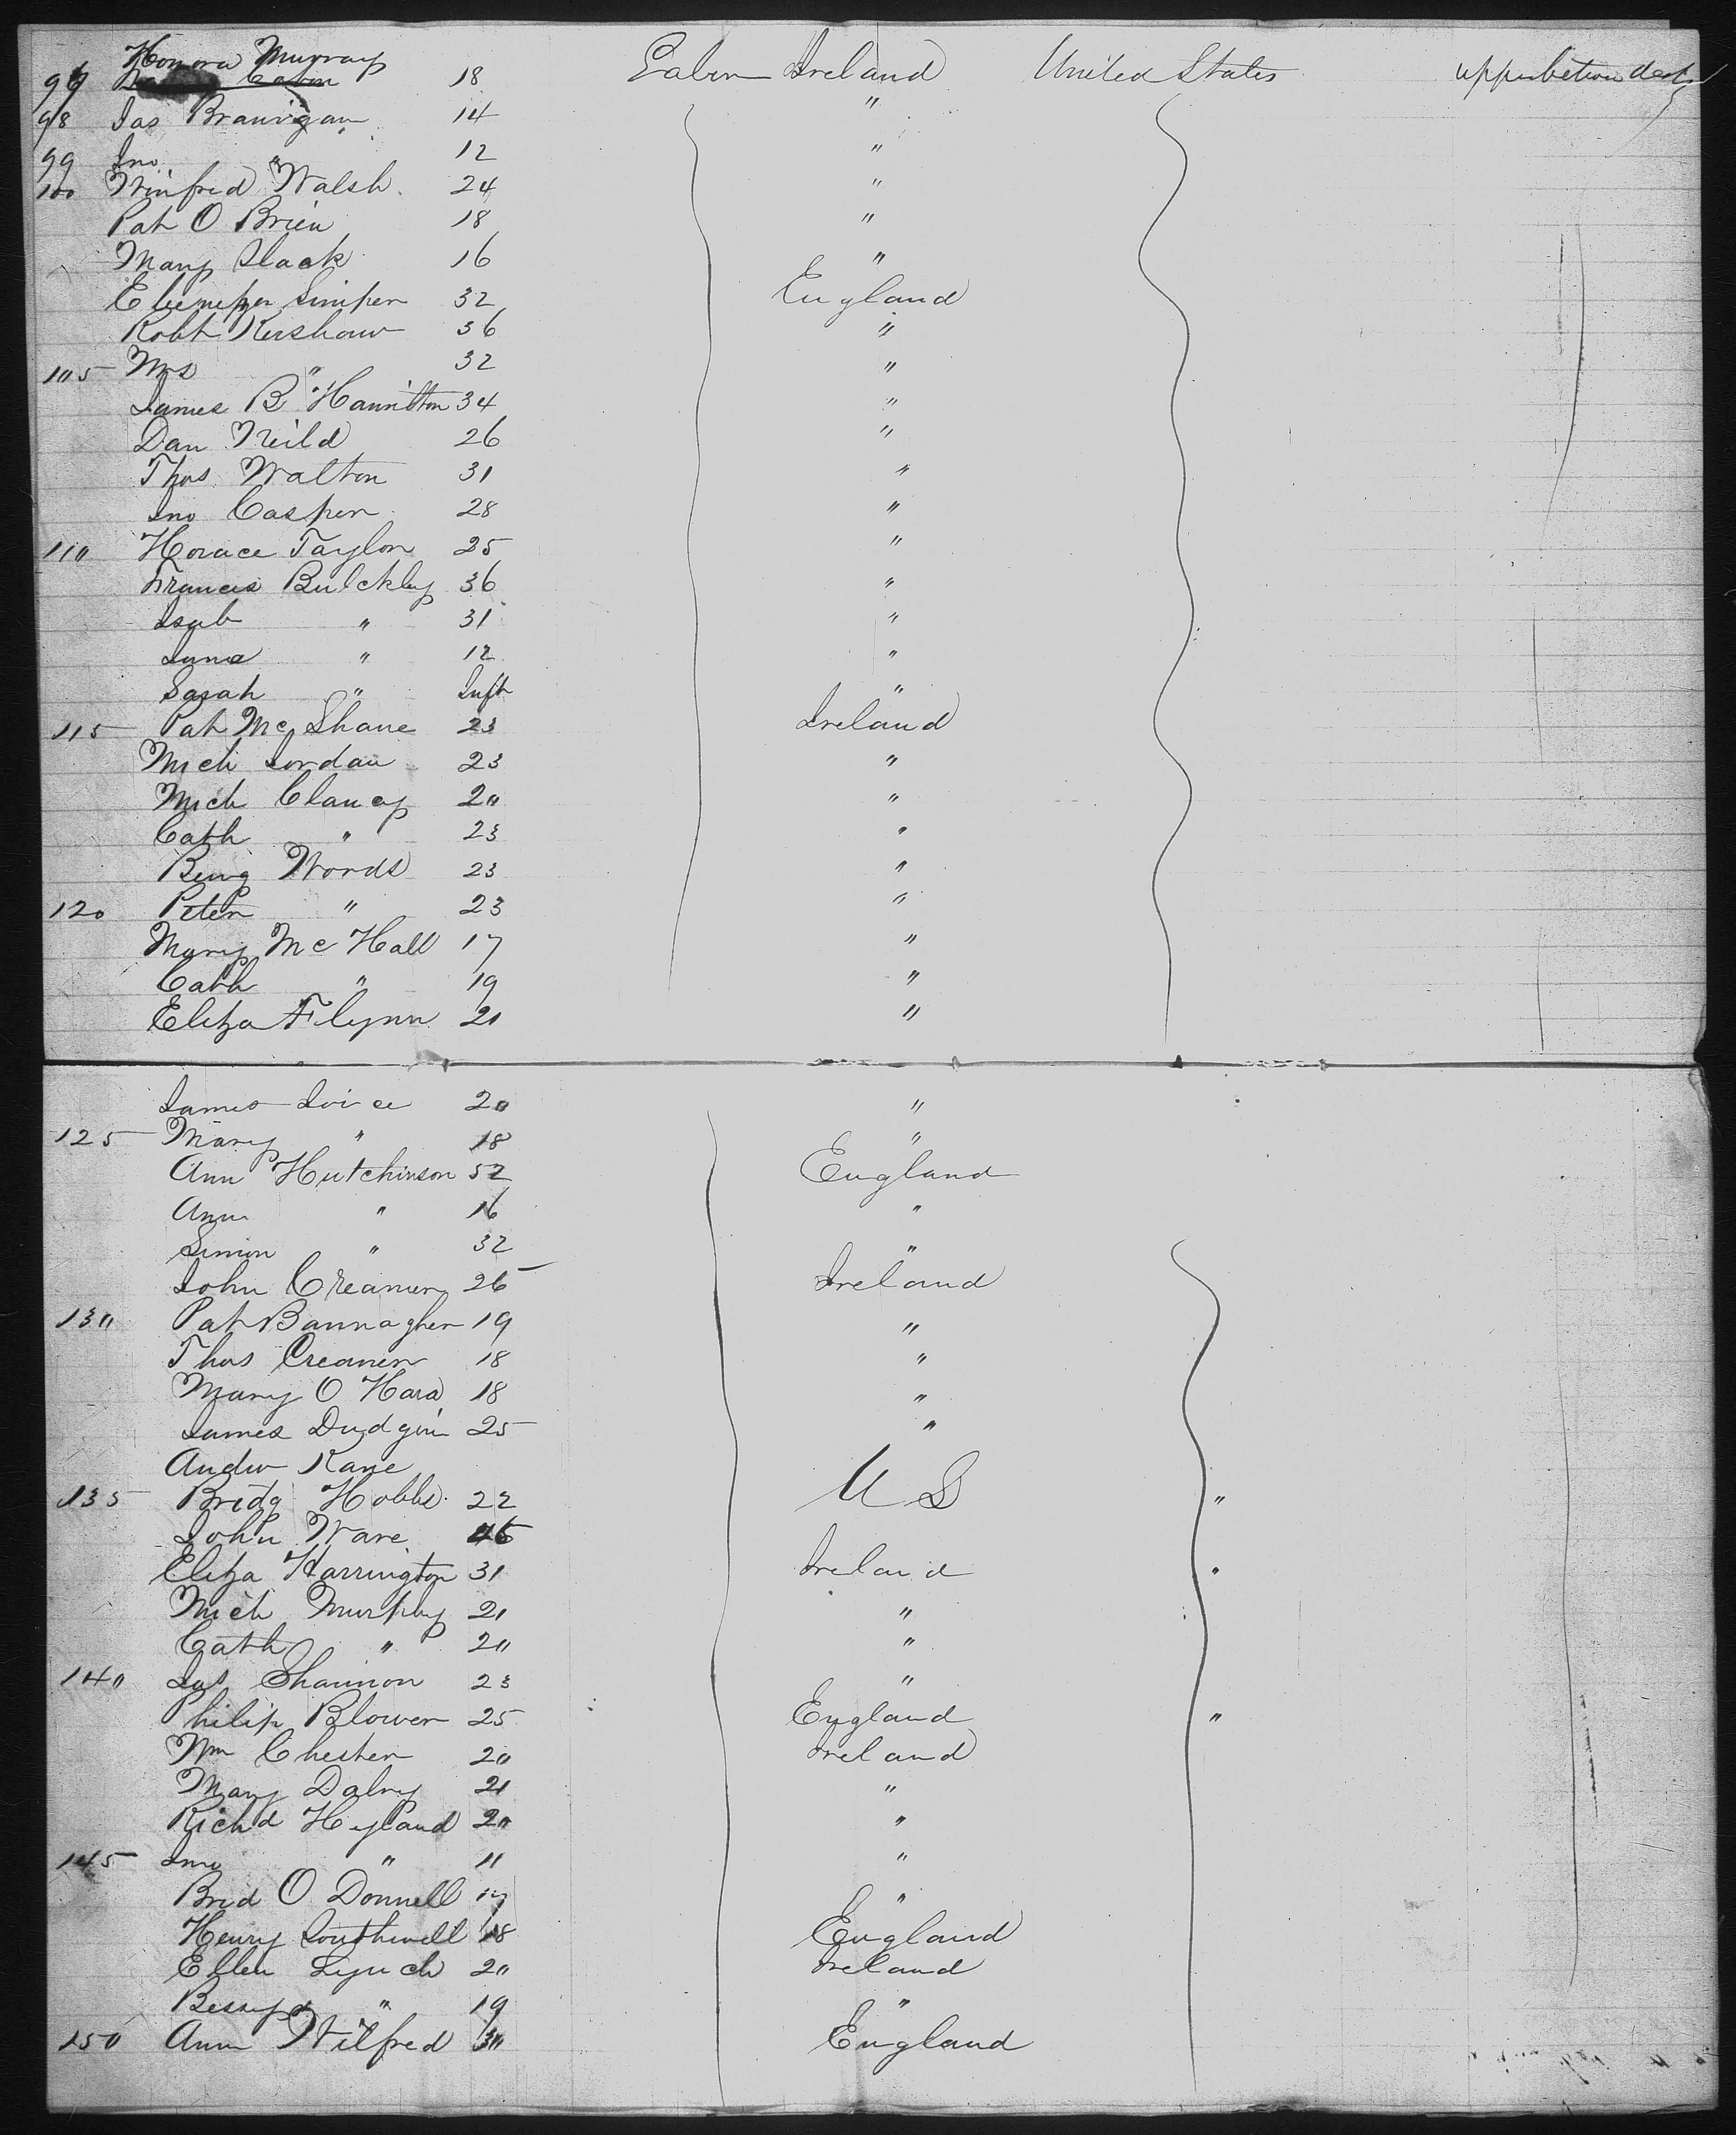 Honora Murray
97 18 Ireland United States upper between deck
98 Jas Branigan 14 "
99 Jno " 12 "
100 Winfred Walsh 24 "
Pat O Brien 18 "
Mary Slack 16 "
Ebenezer 32 England
Robt Kershaw 36 "
105 Mrs " 32 "
James B Hamilton 34 "
Dan Neild 26 "
Thos Walton 31 "
Jno Casper 28 "
110 Horace Taylor 25 "
Francis Bulckley 36 "
Isab " 31 "
Jane " 12 "
Sarah " Inft "
115 Pat Mc Shane 23 Ireland
Mich Jordan 23 "
Mich Clancy 20 "
Cath " 23 "
Benj Words 23 "
120 Peter " 23 "
Mary Mc Hall 17 "
Cath " 19 "
Eliza Flynn 21 "
James Joice 20 "
125 Mary " 18 "
Ann Hutchinson 52 England
Ann " 16 "
Simon " 32 "
John Creamer 26 Ireland
130 Pat Bannagher 19 "
Thos Creamer 18 "
Mary O Hara 18 "
James Dudgin 25 "
Andw Kane
135 Bridg Hobbs 22 U S "
John Ware 45
Eliza Harrington 31 Ireland "
Mich Murphy 21 "
Cath " 20 "
140 Jas Shannon 23 "
Philip Blower 25 England "
Wm Chester 20 Ireland
Mary Dalny 21 "
Richd Hyland 20 "
145 Jno " 11 "
Brid O Donnell 17 "
Henry Southwell 18 England
Ellen Lynch 20 Ireland
Bessy " 19 "
150 Ann Wilfred 30 England